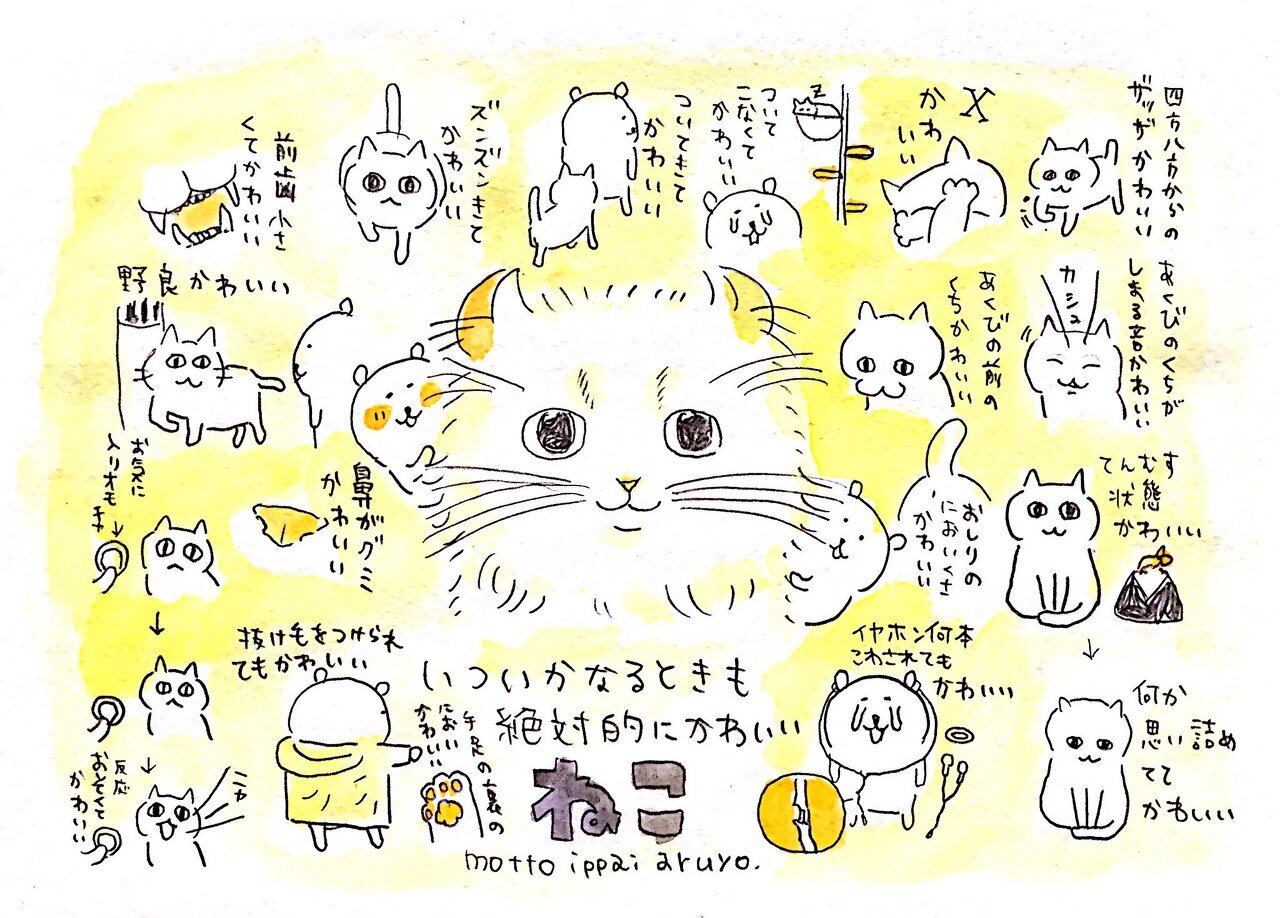 四方八方からの
ザッザかわいい
X
かわ
いい
z
ついて
こなくて
かわいい
ついてきて
かわいい
ズンズンきて
かわいい
前歯小さ
くてかわいい
あくびのくちが
しまる音かわいい
カシュ
あくびの前の
くちかわいい
野良かわいい
てんむす
状態
かわいい
おしりの
においくさ
かわいい
鼻がグミ
かわいい
お気に
入りオモ
チャ
何か
思い詰め
てて
かわいい
イヤホン何本
こわされても
かわいい
抜け毛をつけられ
てもかわいい
手足の裏の
におい
かわいい
ニャ
反応
おそくて
かわいい
いついかなるときも
絶対的にかわいい
ねこ
motto ippai aruyo.